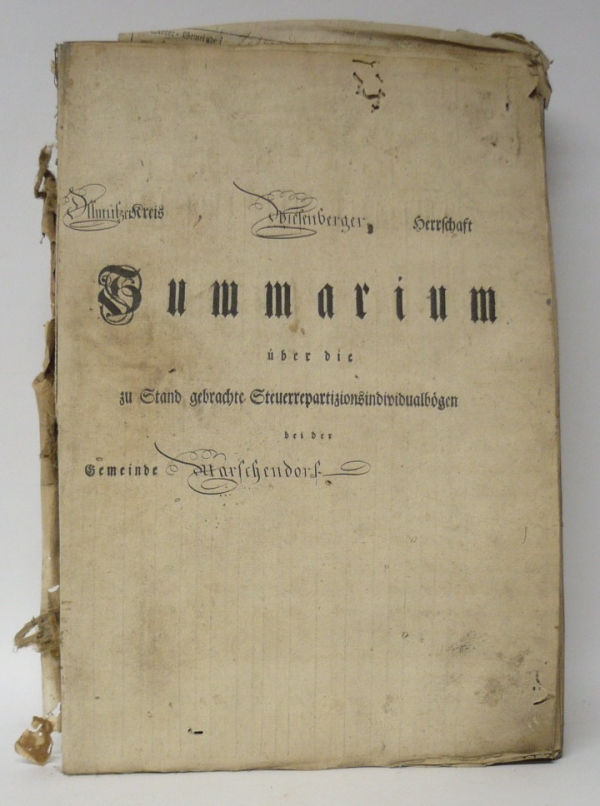 Ollmütze Kreis Wiesenberger Herrschaft
Summarium
über die
zu Stand gebrachte Steuerrepartizionsindividualbögen
bei der
Gemeinde Marschendorf